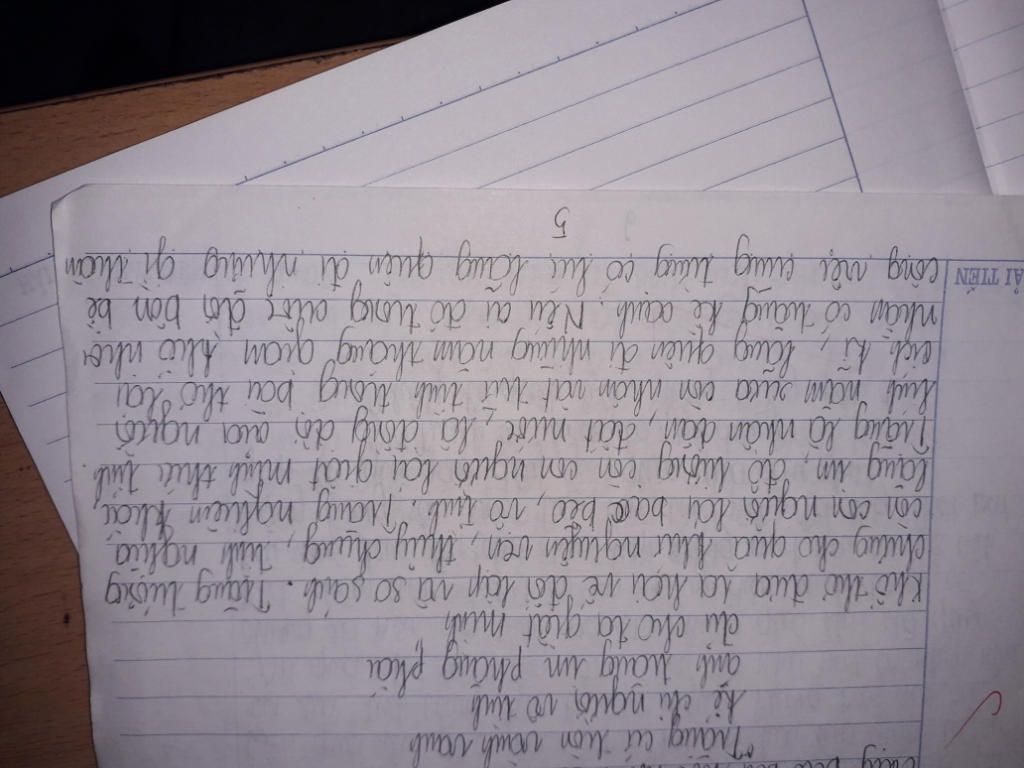 Trăng cứ tròn vành vạnh
kể chi người vô tình
ánh trăng im phăng phắc
đủ cho ta giật mình
Khổ thơ đưa ra hai vế đối lập và so sánh. Trăng tượng
chưng cho quá khứ nguyên vẹn, thủy chung, tình nghĩa
còn con người lại bạc bẽo, vô tình, trăng nghiêm khắc,
lặng im, độ lượng còn con người lại giật mình thức tỉnh.
Trăng là nhân dân, đất nước, là đồng đội của người
lính năm xưa còn nhân vật trữ tình trong bài thơ lại
ích kỉ, lãng quên đi những năm tháng gian khổ nhọc
nhằn có trăng kề cạnh. Nếu ai đó trong cuộc đời bôn bề
công việc cũng từng có lúc lãng quên đi những gì thân
5
ẢI TIẾN